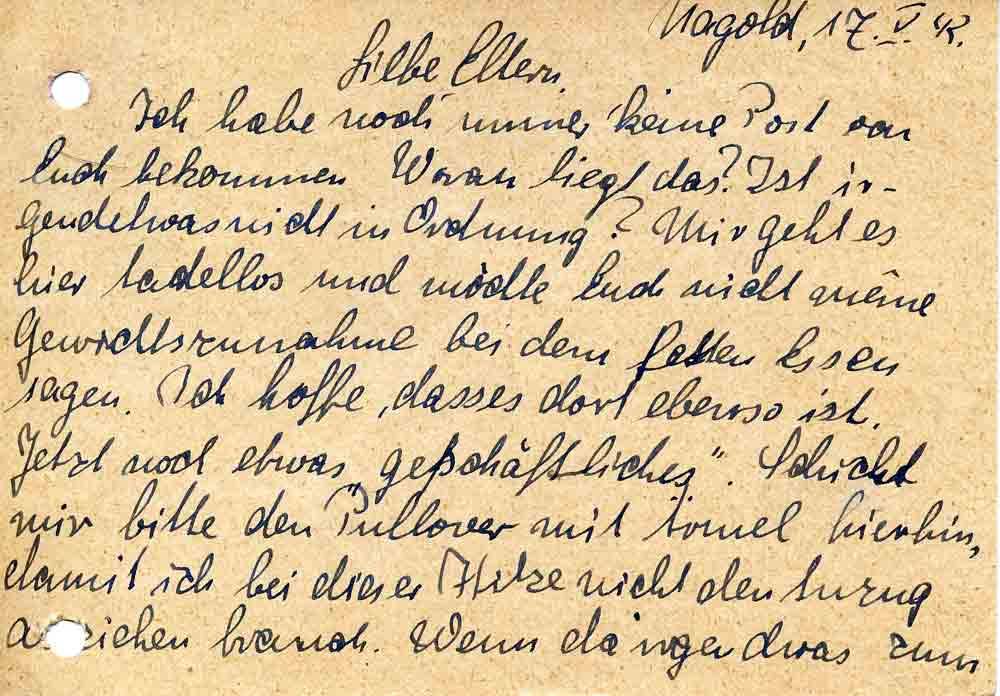 Nagold, 17. V. 42.
Liebe Eltern.
Ich habe noch immer keine Post von
Euch bekommen Woran liegt das? Ist ir-
gendetwas nicht in Ordnung? Mir geht es
hier tadellos und möchte Euch nicht meine
Gewichtszunahme bei dem fetten Essen
sagen. Ich hoffe, dass es dort ebenso ist.
Jetzt noch etwas „geschäftliches". Schickt
mir bitte den Pullover mit Ärmel hierhin,
damit ich bei dieser Hitze nicht den Anzug
anziehen brauch. Wenn da irgendwas zum